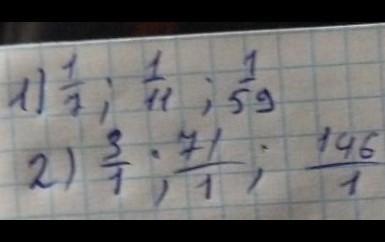 1) 1/7; 1/11; 1/59
2) 3/1; 71/1; 146/1